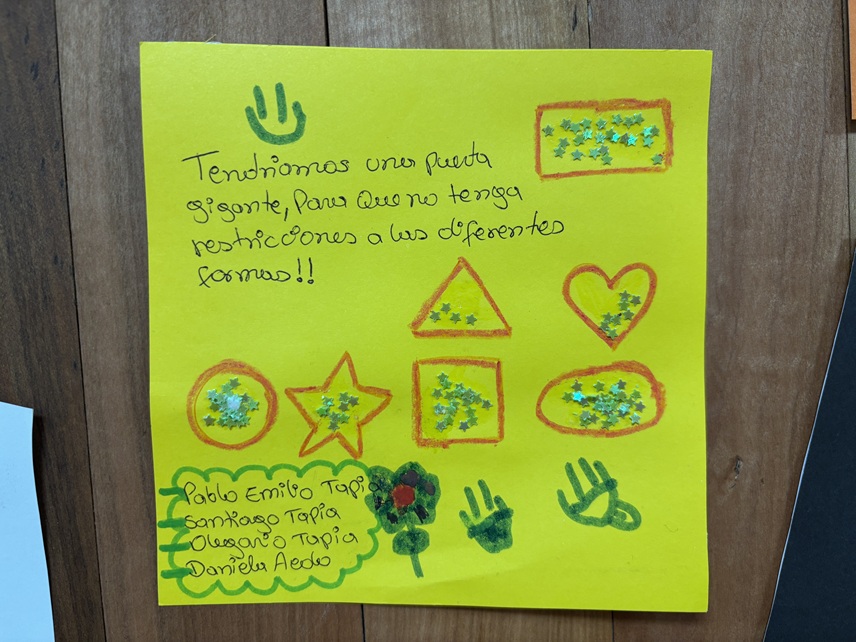 Tendriamos una puerta
gigante, para que no tenga
restricciones a las diferentes
formas!!
Pablo Emilio Tapia
Santiago Tapia
Olegario Tapia
Daniela Aedo